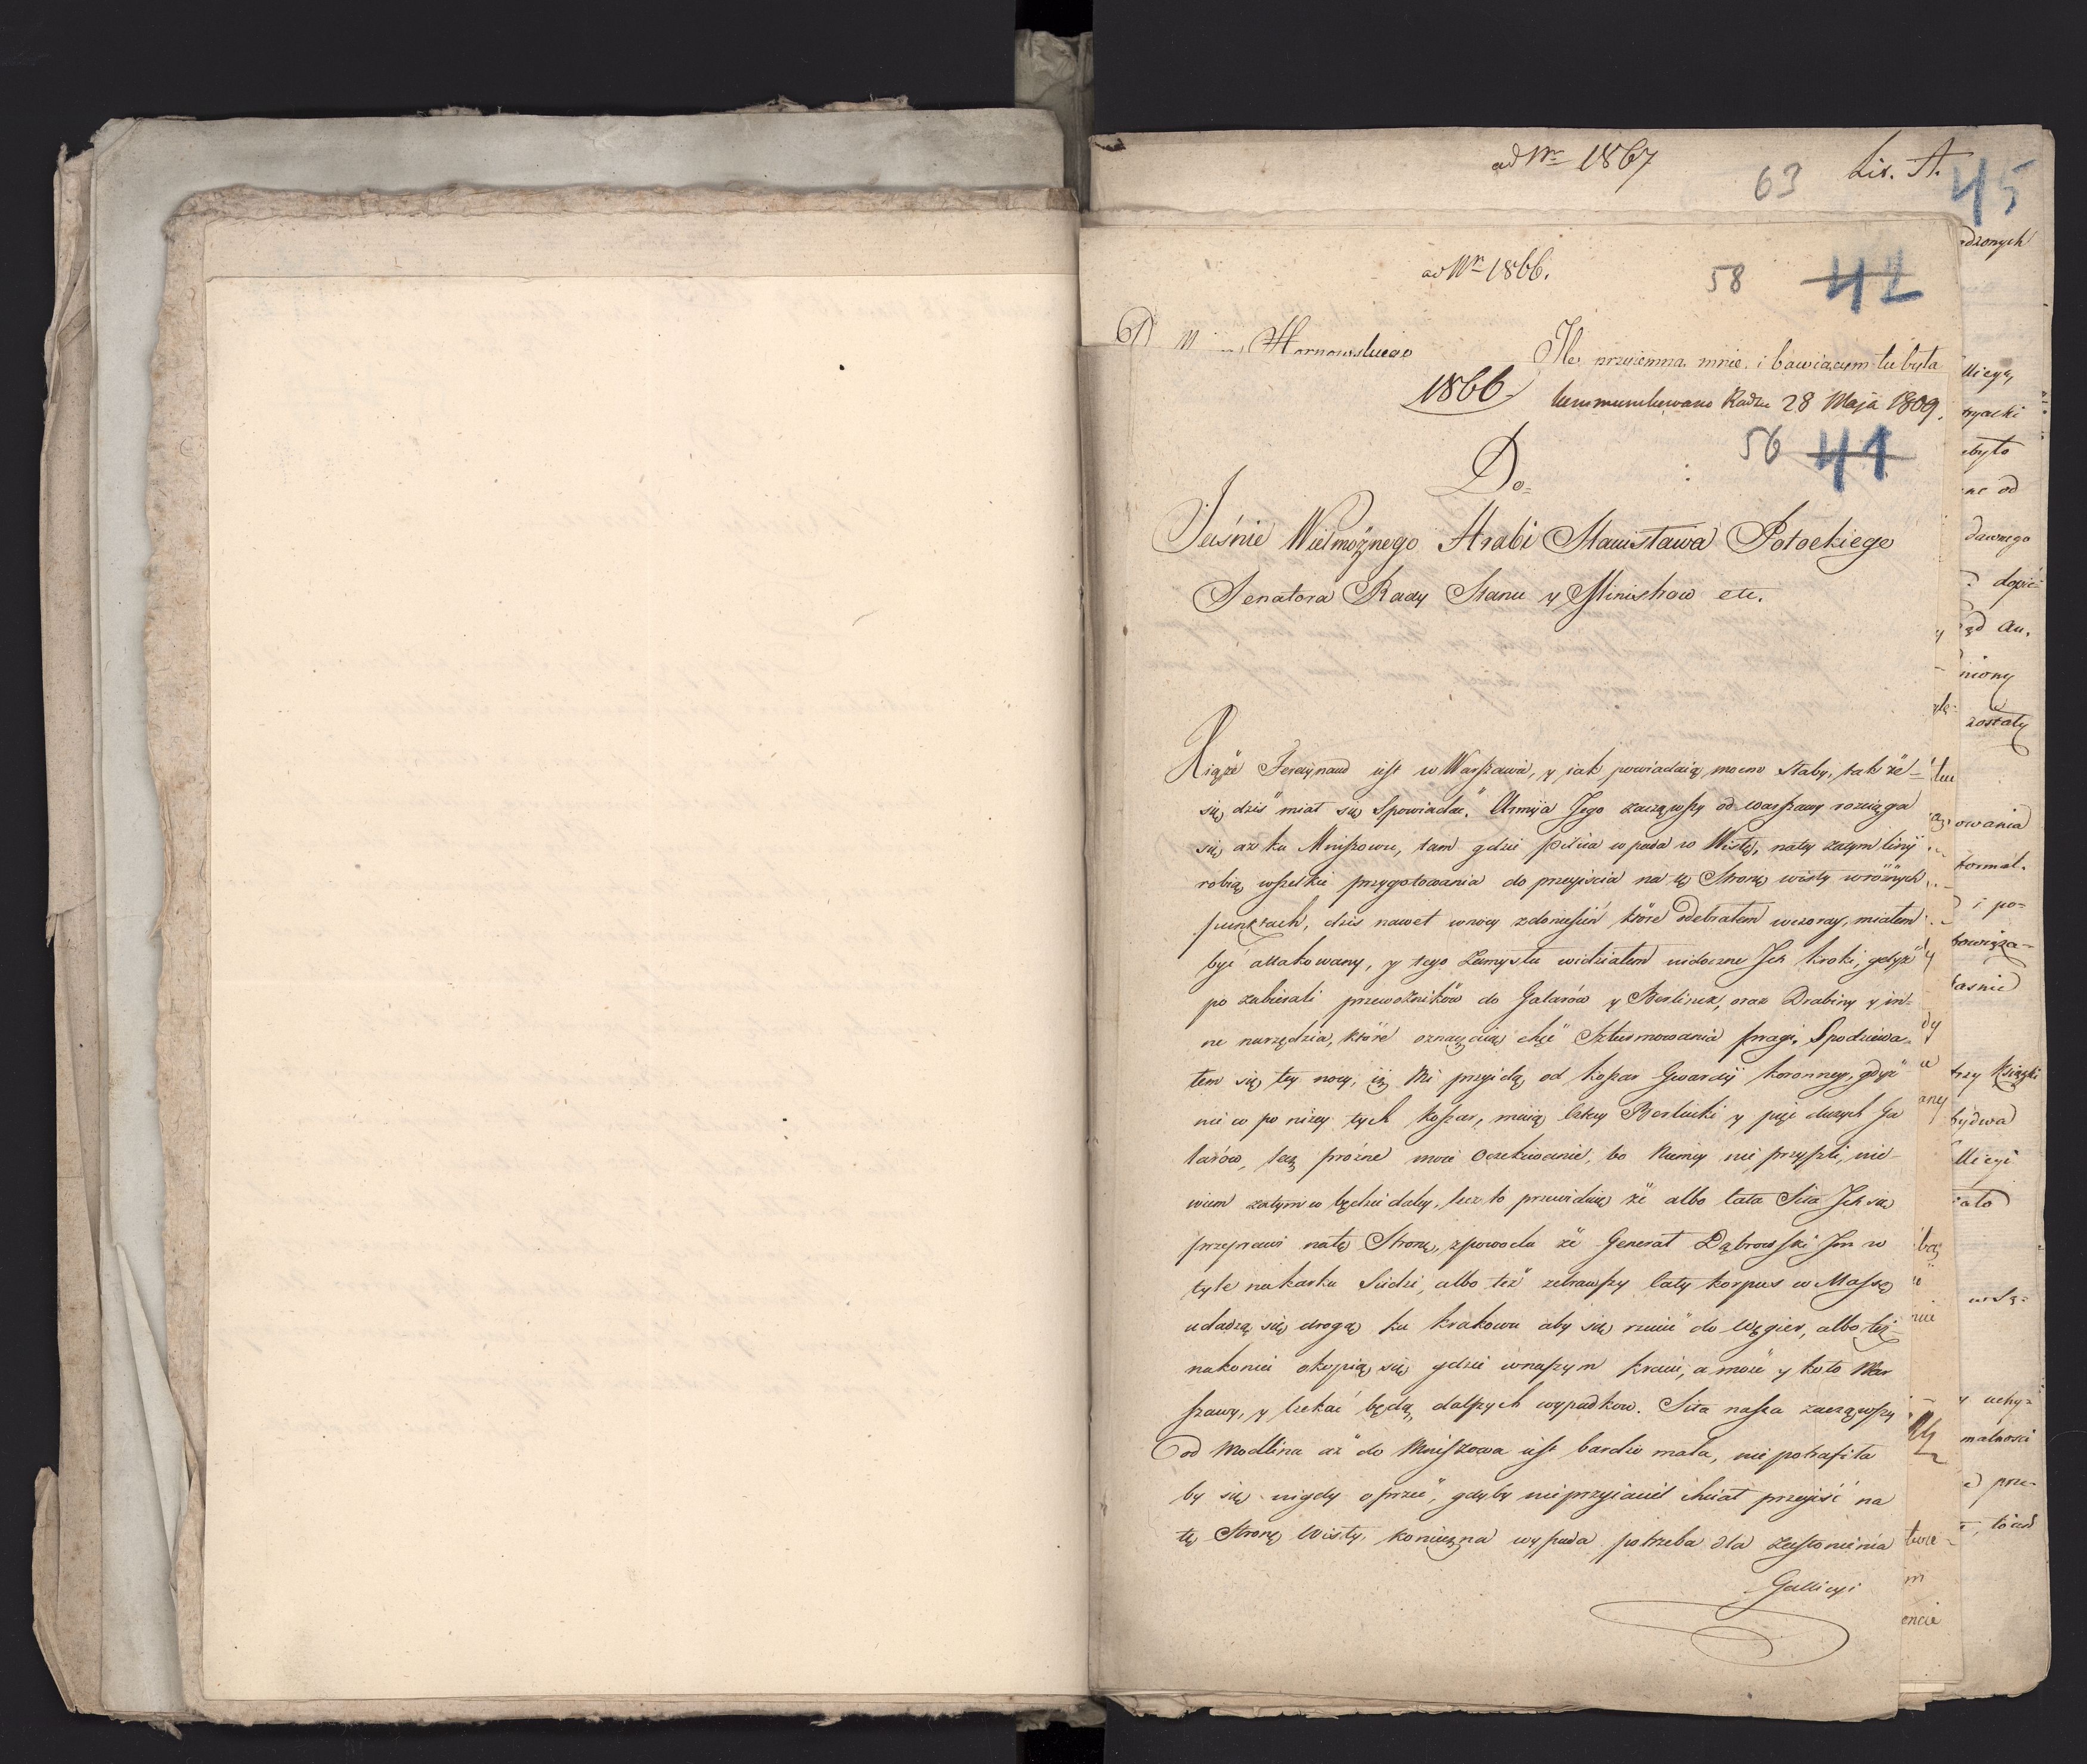 ad Nr 1867
63 Lit. A. 45
ad Nr 1866.
58 42
Hornowskiego
Ile przyiemna mnie i bawiącym tu była
1866
kommunikowano Radzie 28 Maja 1809.
56 41
Do
Jaśnie Wielmożnego Hrabi Stanisława Potockiego
Senatora Rady Stanu y Ministrow etc.
Xiąże Ferdynand iest w Warszawie, y iak powiadaią mocno słaby, tak że
się dziś miał się Spowiadać. Armija Jego zacząwszy od Warszawy rozciąga
się aż ku Mniszowu, tam gdzie pilica wpada w Wisłę, natey zatym linij
robią wszelkie przygotowania do przeyścia na tę Stronę wisły wróżnych
punktach, dziś nawet wnocy zdoniesień które Odebrałem wczoray, miałem
być attakowany, y tego Zamysłu widziałem widoczne Ich kroki, gdyż
po zabierali przewoźników do Galarów y Berlinek, oraz Drabiny y in=
ne narzędzia, które oznaczaią chęć Szturmowania pragi, Spodziewa=
łem się tey nocy, iż Mi przyidą od koszar Gwardij koronney, gdyż
nieco po niżey tych koszar, maią cztery Berlinki y pięć dużych Ga
larów, lecz prożne moie Oczekiwanie, bo Niemcy nie przyszli, nie
wiem zatym co będzie daley, lecz to przewiduię że albo cała Siła Ich się
przeprawi natę Stronę, zpowodu że Generał Dąbrowski Im w
tyle na karku Siedzi, albo też zebrawszy cały korpus w Massę
udadzą się drogą ku krakowu aby się rzucić do Węgier, albo też
nakoniec okopią się gdzie wnaszym kraiu, a może y koło War
szawy, y czekać będą dalszych wypadkow. Siła nasza zacząwszy
od Modlina aż do Mniszowa iest bardzo mała, nie potrafiła
by się nigdy oprzeć, gdyby nieprzyiaciel chciał przeyść na
tę Stronę Wisły, konieczna wypada potrzeba dla zasłonienia
Gallicyi
dzonych
było
ne od
dawnego
niony
zostały
owania
formal.
i po=
trzy Książki
bydwa
llicyi
malnosci